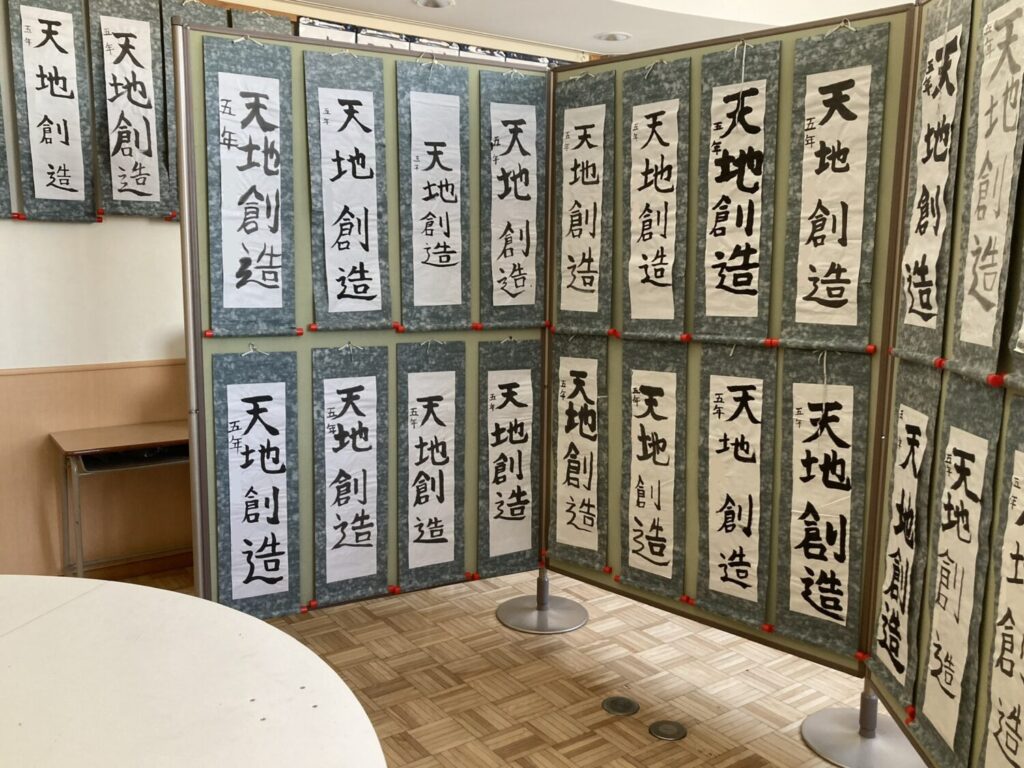 天地創造
天地創造
天地創造
五年
天地創造
五年
天地創造
五年
天地創造
五年
天地創造
五年
天地創造
五年
天地創造
五年
天地創造
五年
天地創造
五年
天地創造
五年
天地創造
五年
天地創造
五年
天地創造
五年
天地創造
五年
天地創造
五年
天地創造
五年
天地創造
五年
天地創造
五年
天地創造
五年
天地創造
五年
天地創造
五年
天地創造
五年